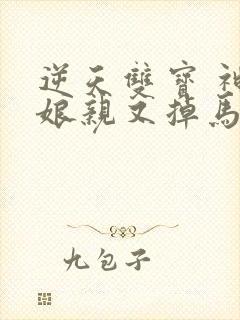 逆天雙寶 神
娘親又掉馬
九包子